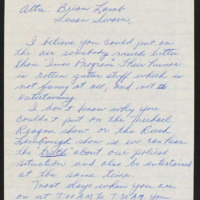 Attn. Brian Lamb
Susan Swain,
I believe you could put on
the air somebody much better
than Imus Program. Their humor
is rotten gutter stuff which is
not funny at all, and not
entertaining.
I don't know why you
couldn't put on the Michael
Reagan show or the Rush
Limbaugh show so we can hear
the "truth" about our political
situation and also be entertained
at the same time.
Most days when you are
on at 7:00 AM to 7:30 AM you